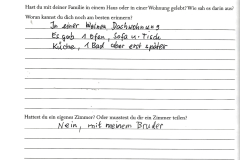 Hast du mit deiner Familie in einem Haus oder in einer Wohnung gelebt? Wie sah es darin aus?
Woran kannst du dich noch am besten erinnern?
In einer kleinen Dachwohnung
Es gab 1 Ofen, Sofa u. Tisch
Küche, 1 Bad aber erst später
Hattest du ein eigenes Zimmer? Oder musstest du dir ein Zimmer teilen?
Nein, mit meinem Bruder